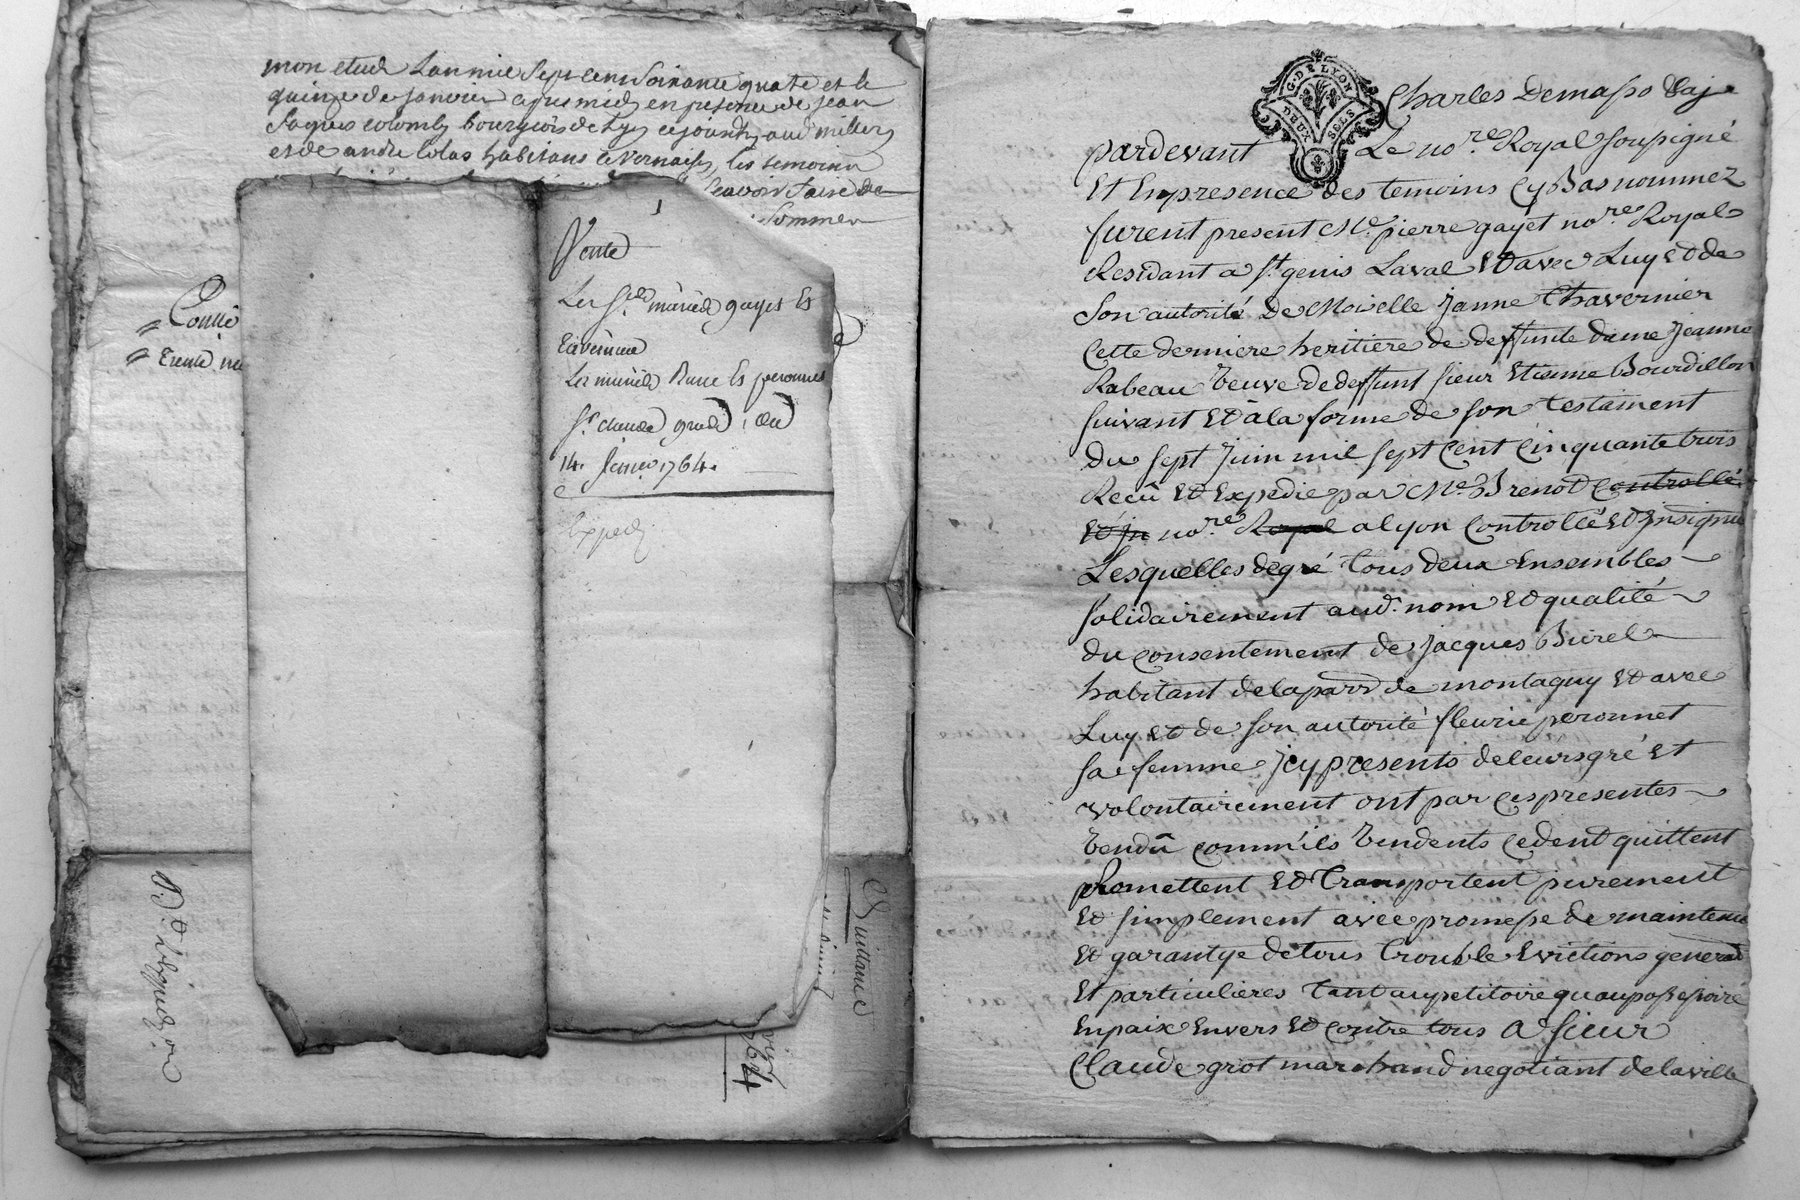 mon etude L'an mil Sept Cent Soixante quatre et le
quinze de Janvier apres midy en presence de Jean
Jaques colomb Bourgeois de Lyon
et de andré Colas habitans a Vernaison les temoins
Scavoir faire de
Sommer
Conue
trente
Vente
Les Srs mariés gayet Et
Les mariés Burel Et peronnet
Sr claude grod : du
14. Janer 1764.
Exped
Quittance
1764
G. DE LYON
DEUX SOLS
Charles Demaso
pardevant Le nore Royal soussigné
Et En presence des temoins Cy Bas nommez
furent present Me pierre gayet nore Royal
Residant a St genis Laval Et avec Luy Et de
Son autorité Demoiselle Janne Chavernier
Cette derniere heritiere de deffunte dame Jeanne
Rabeau Veuve de deffunt sieur Etienne Bourdillon
suivant Et à la forme de son testament
du sept Juin mil sept Cent Cinquante trois
Recû Et Expedie par Me Brenot Controllé
Et In nore Royal a Lyon Controllé Et Insinué
Lesquelles degré tous deux Ensembles
solidairement aud. nom Et qualité
du Consentement de Jacques Burel
habitant de la parr de montagny Et avec
Luy Et de son autorité fleurie peronnet
sa femme Jcy presents de leurs gré Et
volontairement ont par Ces presentes
Vendû comm'ils Vendents Cedent quittent
Remettent Et Transportent purement
Et simplement avec promesse de maintenue
Et garantye de tous trouble Evictions general
Et particulieres tant au petitoire qu'au possessoire
En paix Envers Et Contre tous a sieur
Claude grot marchand negotiant de la ville